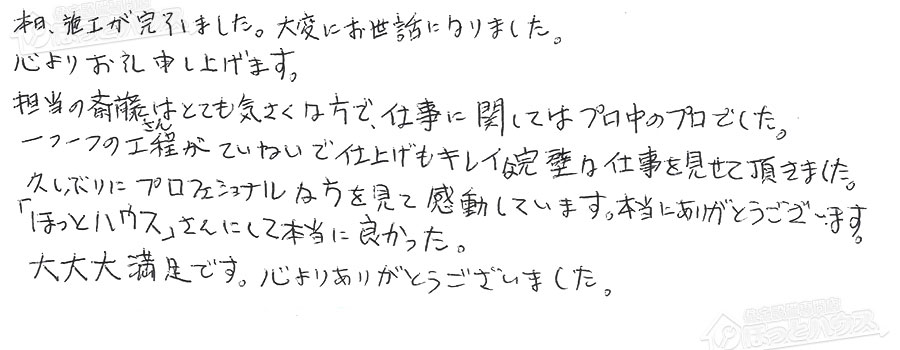 本日、施工が完了しました。大変にお世話になりました。
心よりお礼申し上げます。
担当の斎藤さんはとても気さくな方で、仕事に関してはプロ中のプロでした。
一つ一つの工程がていねいで仕上げもキレイな完璧な仕事を見せて頂きました。
久しぶりにプロフェショナルな方を見て感動しています。本当にありがとうございます。
「ほっとハウス」さんにして本当に良かった。
大大大満足です。心よりありがとうございました。
住宅設備専門店
ほっとハウス